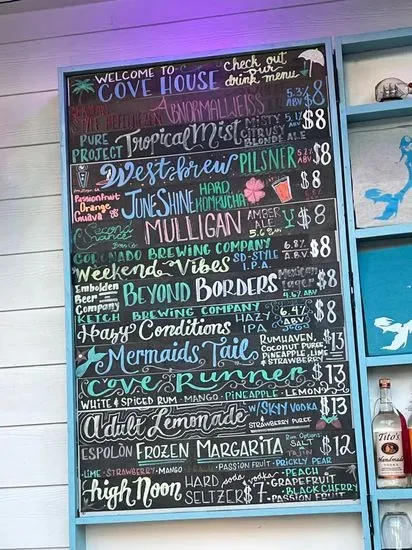 WELCOME TO COVE HOUSE
check out our drink menu
BAVARIAN STYLE HEFEWEIZEN ABNORMALWEISS 5.3% ABV $8
PURE PROJECT Tropical Mist MISTY CITRUSY BLONDE ALE 5.1% ABV $8
Westbrew PILSNER 5.2% ABV $8
PASSIONFRUIT Orange Guava JUNESHINE HARD KOMBUCHA $8
Second Chance Beer Co. MULLIGAN AMBER ALE 5.6% $8
CORONADO BREWING COMPANY
Weekend Vibes SD-STYLE I.P.A. 6.8% A.B.V. $8
Embolden Beer Company BEYOND BORDERS Mexican Lager 4.6% ABV $8
KETCH BREWING COMPANY
Hazy Conditions HAZY IPA 6.4% ABV $8
Mermaids Tail RUMHAVEN, COCONUT PUREE, PINEAPPLE, LIME & STRAWBERRY $13
Cove Runner $13
WHITE & SPICED RUM · MANGO · PINEAPPLE · LEMON
Adult Lemonade W/ SKYY VODKA STRAWBERRY PUREE $13
ESPOLÒN FROZEN MARGARITA Rim Options: SALT TAJIN $12
· LIME · STRAWBERRY · MANGO · PASSION FRUIT · PRICKLY PEAR
high Noon HARD SELTZER soda vodka $7 · PEACH · GRAPEFRUIT · BLACK CHERRY · PASSION FRUIT
Tito's
Handmade